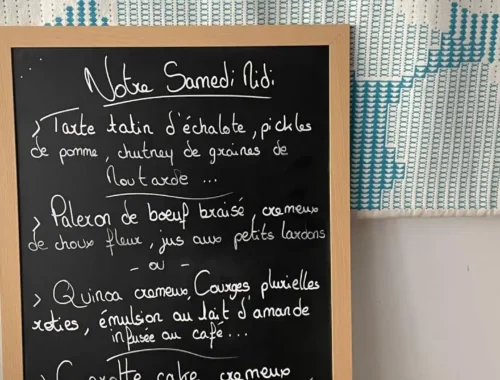 Notre Samedi Midi
> Tarte tatin d'échalote, pickles
de pomme, chutney de graines de
Moutarde ...
> Paleron de bœuf braisé, cremeux
de choux fleur, jus aux petits lardons
- ou -
> Quinoa cremeux, Courges plurielles
roties, émulsion au lait d'amande
infusée au café...
> Carotte cake cremeux